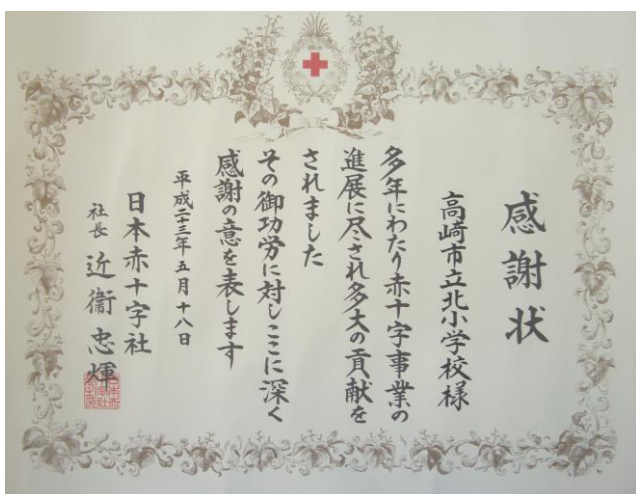 感謝状
高崎市立北小学校様
多年にわたり赤十字事業の
進展に尽され多大の貢献を
されました
その御功労に対しここに深く
感謝の意を表します
平成二十三年五月十八日
日本赤十字社
社長 近衞忠煇